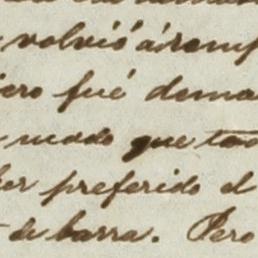 volvió á remp
ero fué dema
modo que tod
er preferido el
de barra. Pero